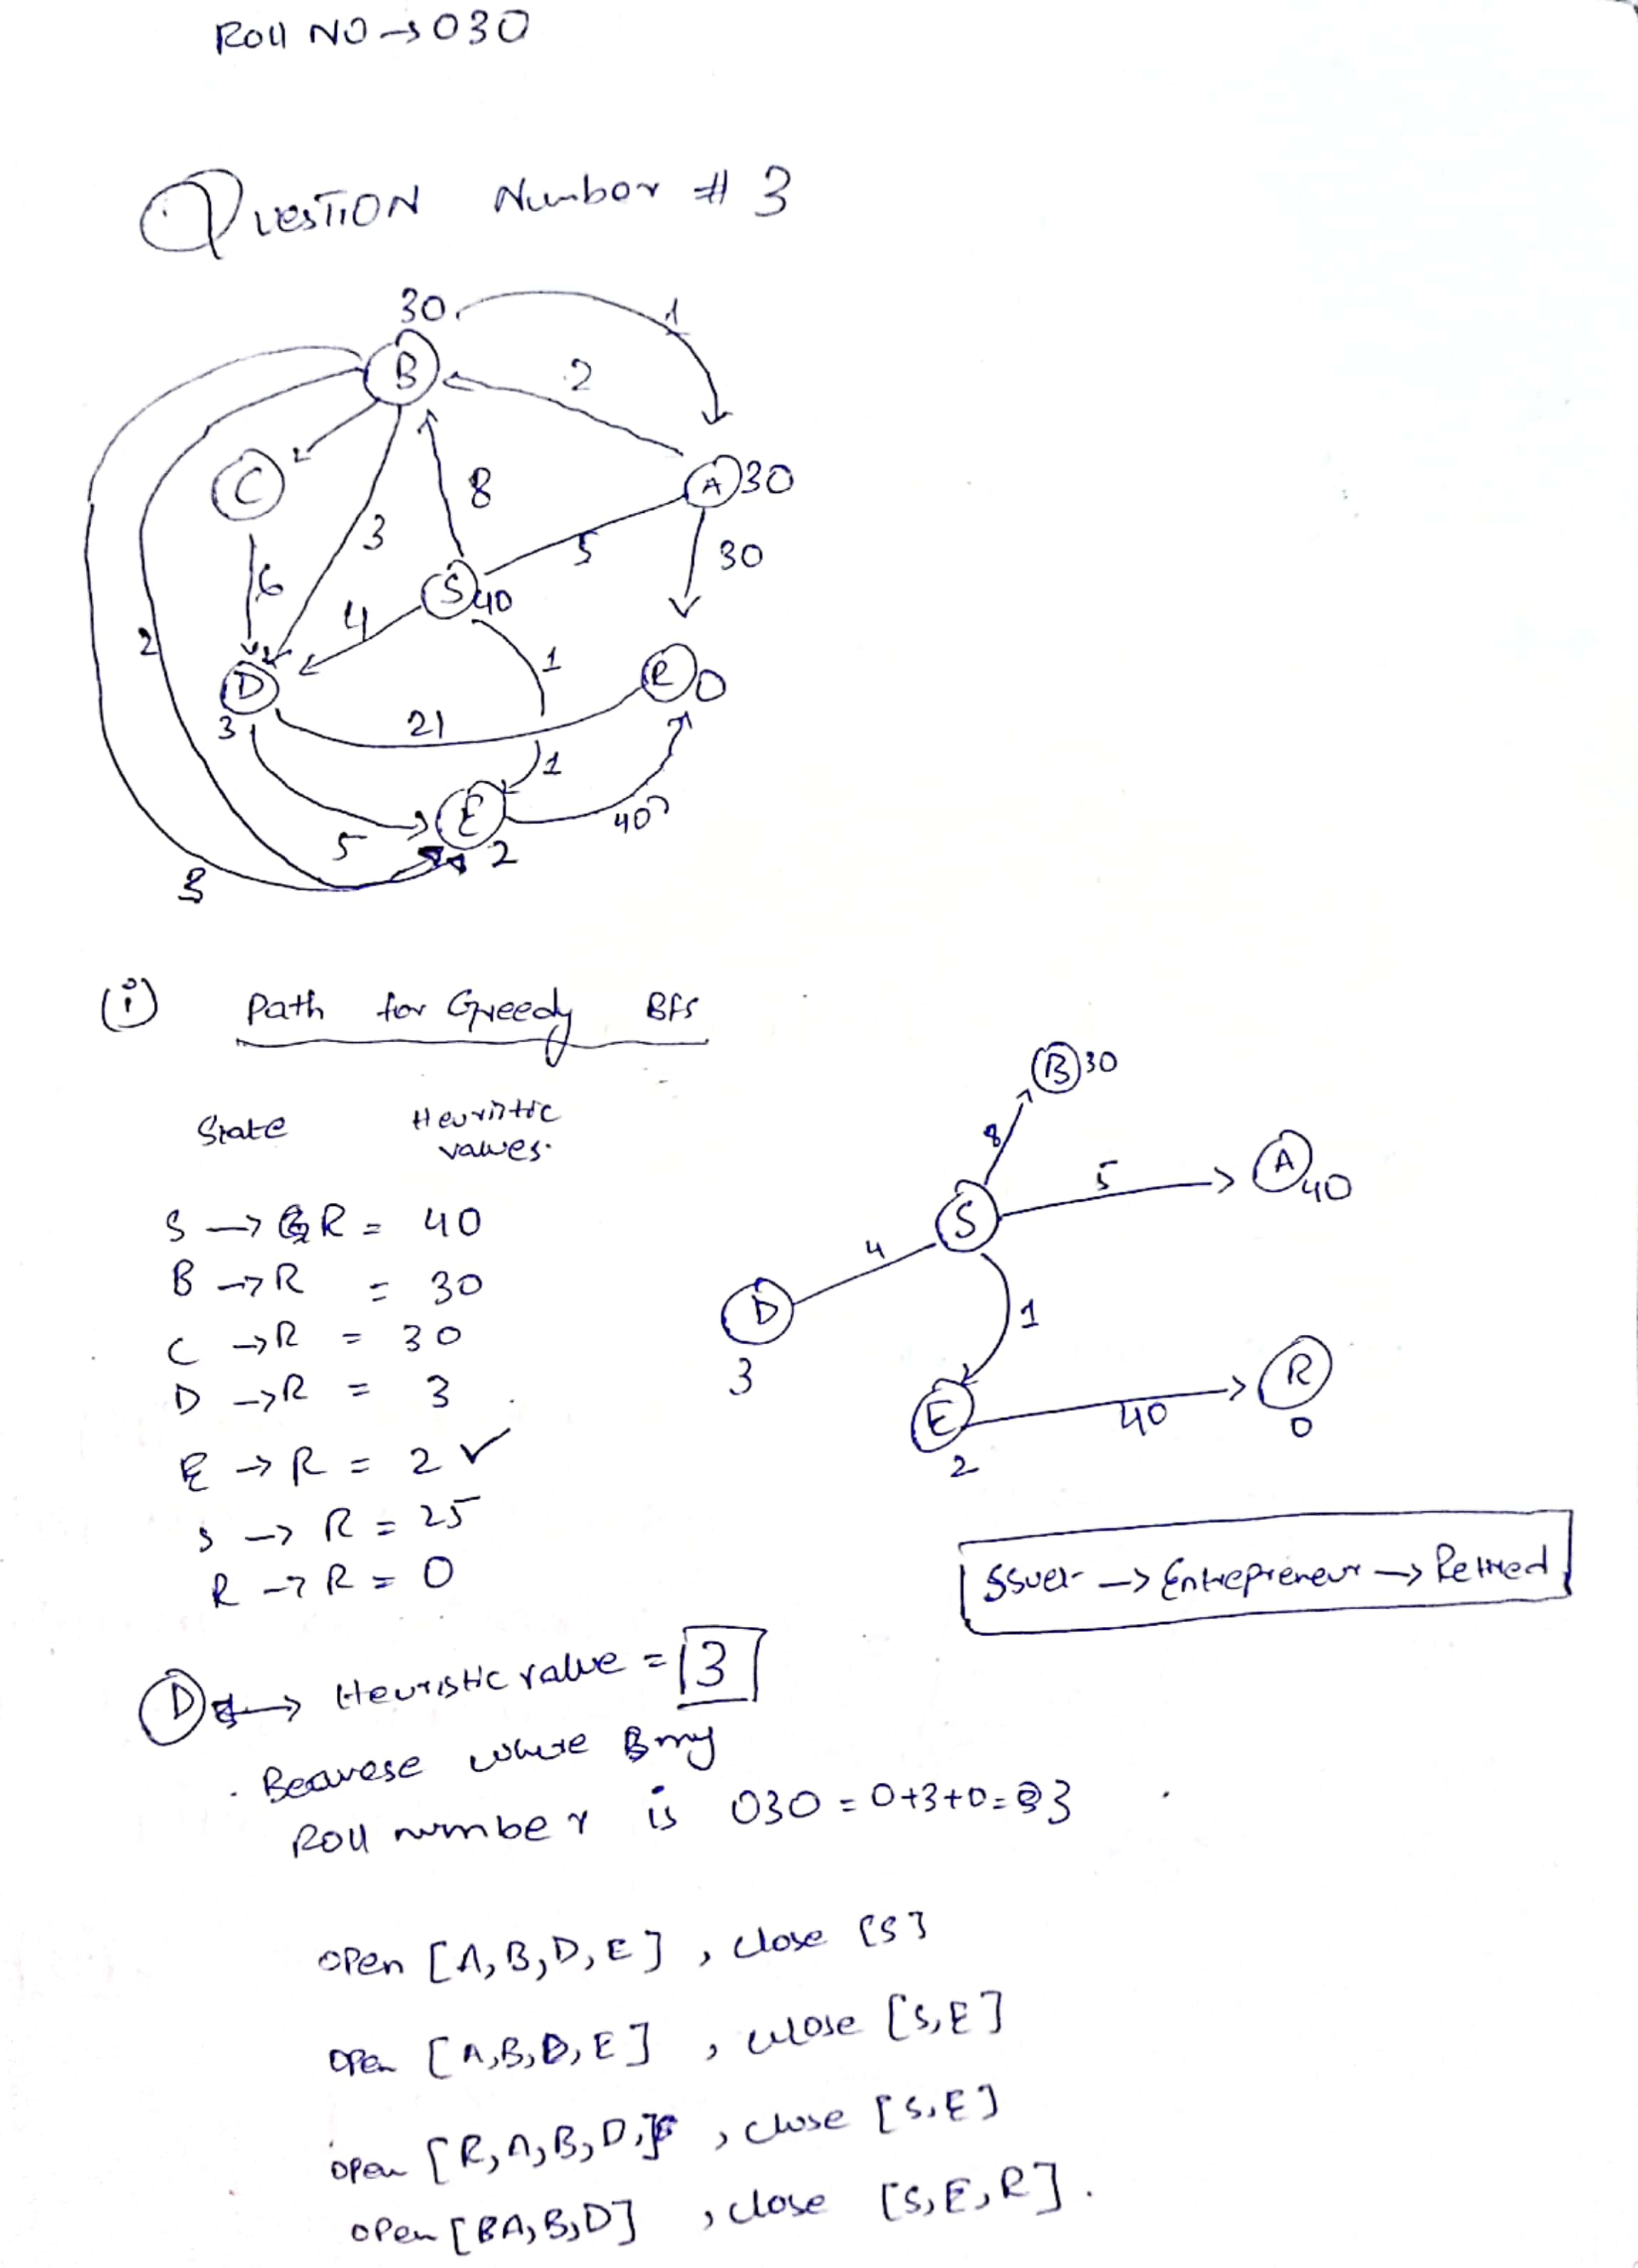 Roll NO → 030
QUESTION Number # 3
30
1
B
2
C
8
A 30
3
5
30
6
S 40
4
2
1
R 0
D
3
21
1
E
40
5
2
3
(i) Path for Greedy BFS
B 30
State Heuristic
values.
8
5
A 40
S → R = 40
S
B → R = 30
4
C → R = 30
D
1
D → R = 3
3
R
E → R = 2 ✓
E
40
0
2
S → R = 25
R → R = 0
Issuer → Entrepreneur → Retired
D → Heuristic value = 3
Beavese where my
Roll number is 030 = 0+3+0 = 3
open [A, B, D, E] , close [S]
open [A, B, D, E] , close [S, E]
open [R, A, B, D, ] , close [S, E]
open [BA, B, D] , close [S, E, R].